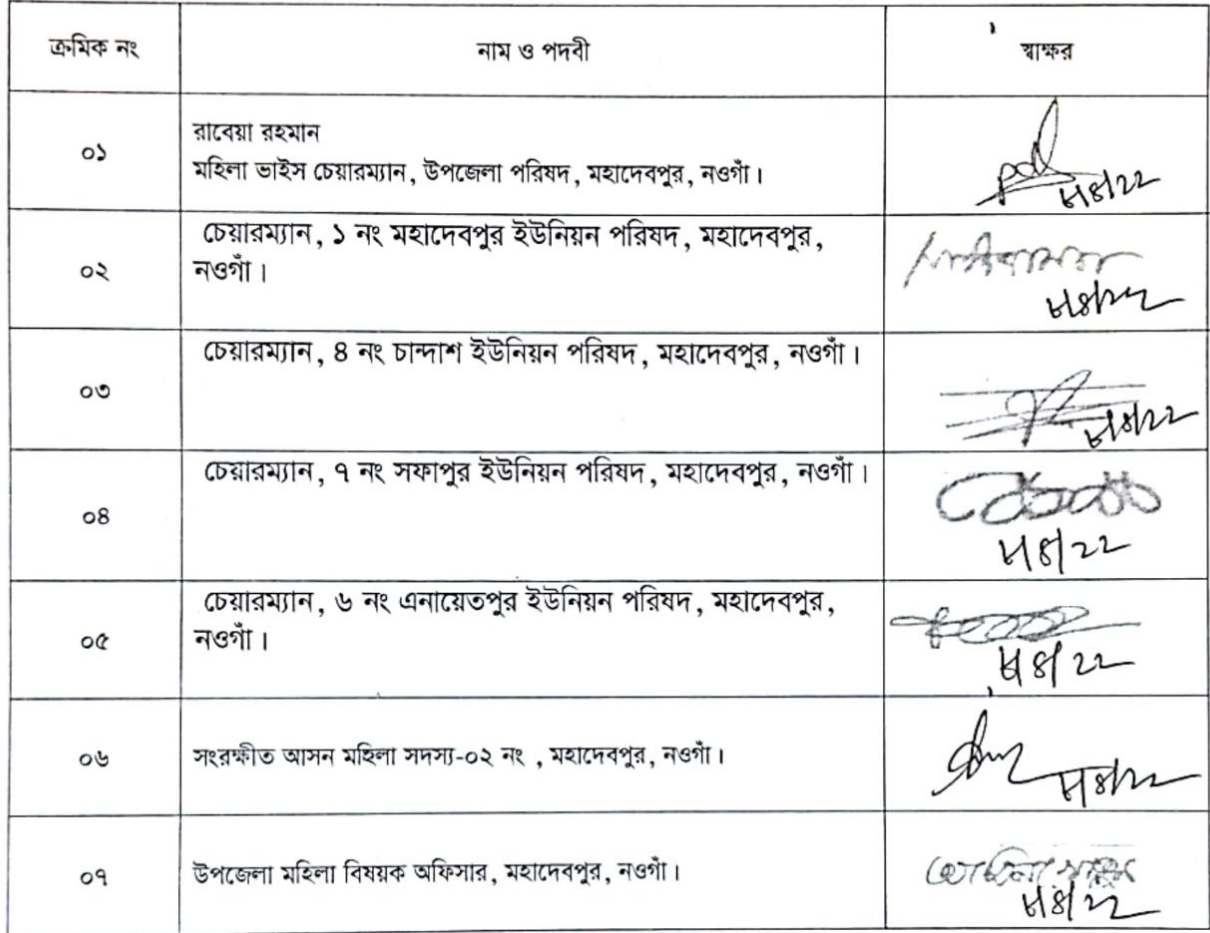 ক্রমিক নং
নাম ও পদবী
স্বাক্ষর
০১
রাবেয়া রহমান
মহিলা ভাইস চেয়ারম্যান, উপজেলা পরিষদ, মহাদেবপুর, নওগাঁ।
০২
চেয়ারম্যান, ১ নং মহাদেবপুর ইউনিয়ন পরিষদ, মহাদেবপুর,
নওগাঁ।
০৩
চেয়ারম্যান, ৪ নং চান্দাশ ইউনিয়ন পরিষদ, মহাদেবপুর, নওগাঁ।
০৪
চেয়ারম্যান, ৭ নং সফাপুর ইউনিয়ন পরিষদ, মহাদেবপুর, নওগাঁ।
০৫
চেয়ারম্যান, ৬ নং এনায়েতপুর ইউনিয়ন পরিষদ, মহাদেবপুর,
নওগাঁ।
০৬
সংরক্ষীত আসন মহিলা সদস্য-০২ নং , মহাদেবপুর, নওগাঁ।
০৭
উপজেলা মহিলা বিষয়ক অফিসার, মহাদেবপুর, নওগাঁ।